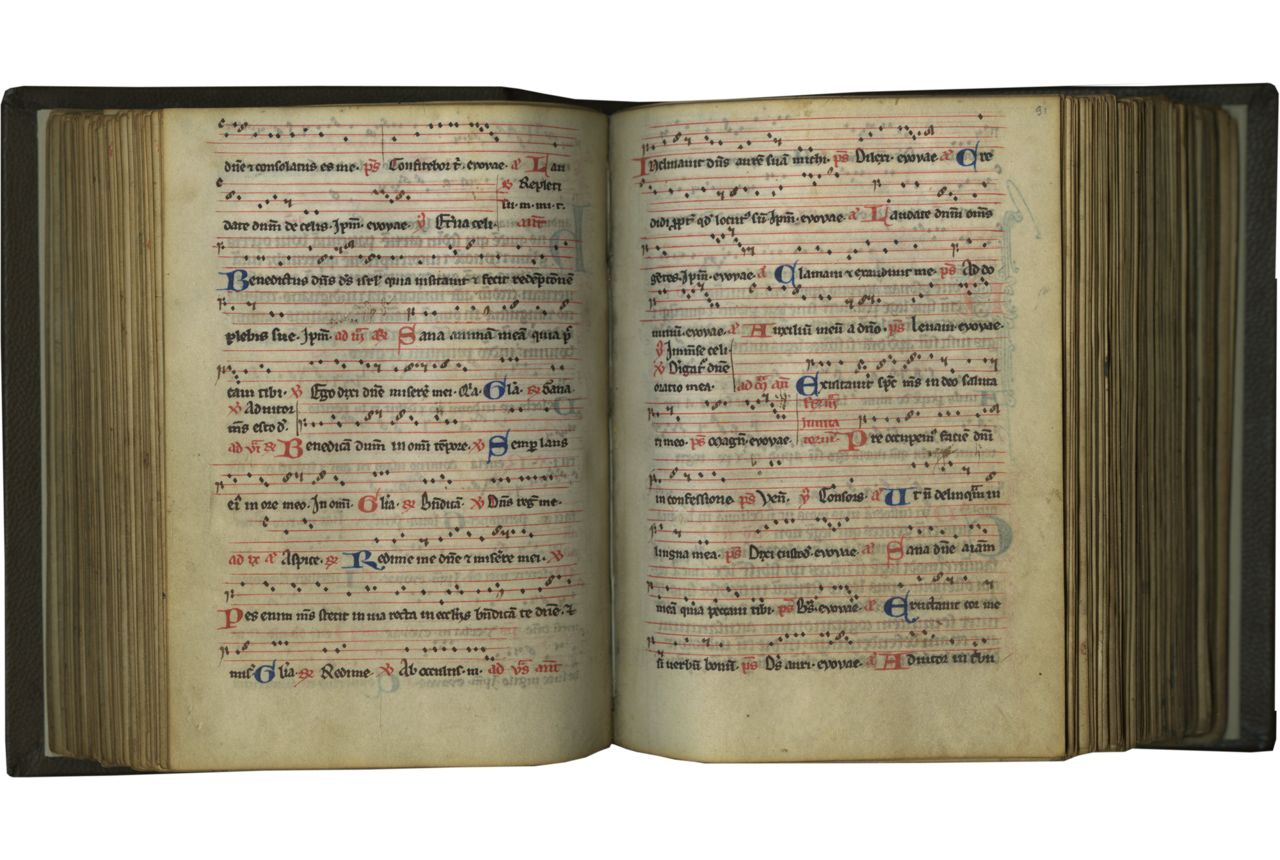 dn̄e ⁊ consolatus es me. pš Confitebor t̄. evovae. a᷒ Lau
℟ Repleti
su. m. mi. r.
date dn̄m de celis. Ipm̄. evovae. ℣ Et̄na celi. ant̄
Benedictus dn̄s ds̄ isrl̓ quia uisitauit ⁊ fecit redēptionē
plebis sue. Ipm̄. ad iij R̄ Sana animā meā quia p̄
caui tibi. ℣ Ego dixi dn̄e miserē mei. Q̄a. Gl̄a. ℟ Sana
℣ Adiutor
ms̄ esto d̓.
ad vi ℟ Benedicā dn̄m in om̄i tēpore. ℣ Semp̱ laus
eī in ore meo. In om̄i. Gl̄ia. ℟ Bn̄dicā. ℣ Dn̄s reg̓ me.
ad ix a᷒ Aspice. ℟ Redime me dn̄e ⁊ miserē mei. ℣
Pes enim ms̄ stetit in uia recta in eccl̄iis bn̄dicā te dn̄e. ⁊
mis̓ Gl̄ia. ℟ Redime. ℣ Ab occultis. m. ad vs̄ ant̄
91
Inclinauit dn̄s aurē suā michi. pš Dilexi. evovae a᷒ Cre
didi ꝓpt̓ qd̓ locut᷒ sū. Ipm̄. evovae. a᷒ Laudate dn̄m om̄s
gētes. Ipm̄. evovae. a᷒ Clamaui ⁊ exaudiuit me. pš Ad do
minū. evovae. a᷒ Auxiliū meū a dn̄o. pš Leuaui. evovae.
ỹ Inmēse celi.
℣ Dirigat̓ dn̄e
oratio mea. ad m̄ an̄ Exultauit sp̄c ms̄ in deo saluta
feria
ri meo. pš Magn̄. evovae. inuita
torīū. Pre occupem᷒ faciē dn̄i
in confessione. pš Venī. ỹ Consors. a᷒ Ut ñ delinquā in
lingua mea. pš Dixi custod̓. evovae. a᷒ Sana dn̄e aīam
meā quia peccaui tibi. pš Bs̄. evovae. a᷒ Eructauit cor me
ū uerbū bonū. pš Ds̄ auri. evovae. a᷒ Adiutor in tribu